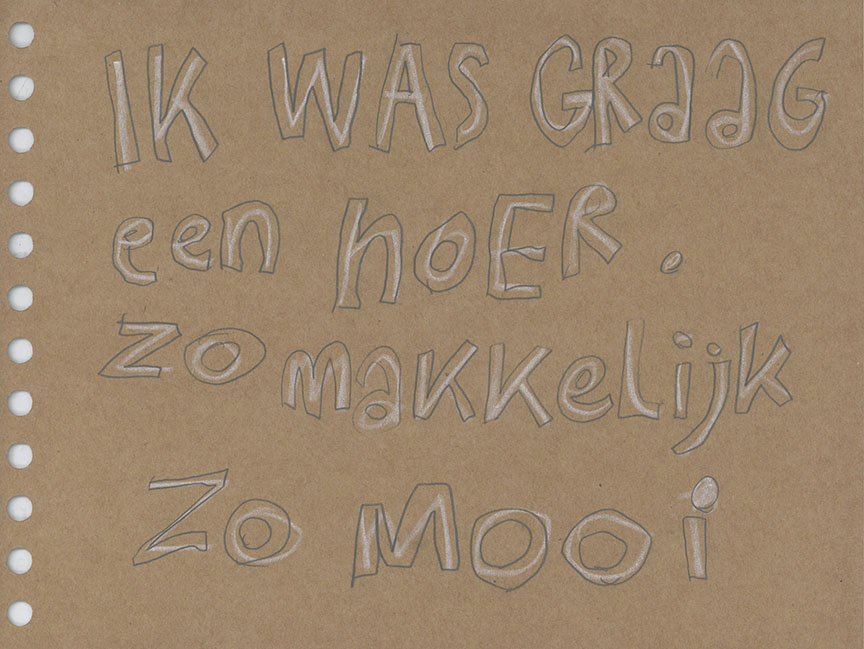 IK WAS GRaaG
een hoER.
ZO makkelijk
ZO MOOi